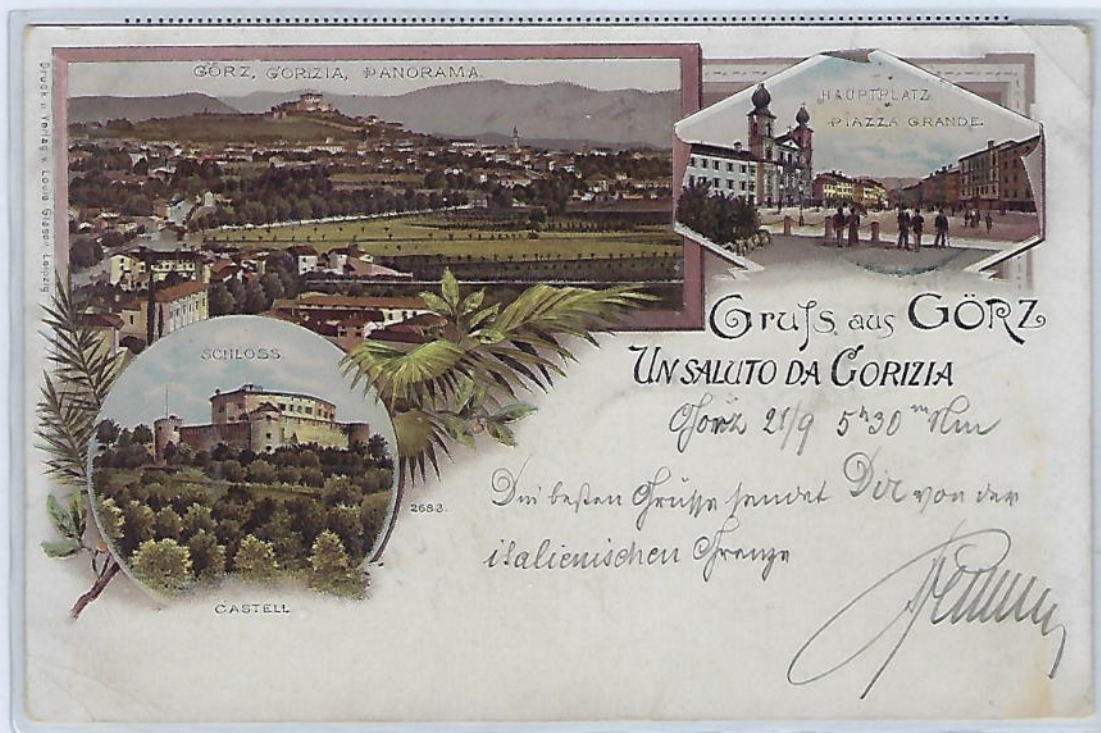 Druck u. Verlag v. Louis Glaser, Leipzig
GÖRZ, GORIZIA, PANORAMA.
HAUPTPLATZ
PIAZZA GRANDE.
SCHLOSS.
Gruſs aus GÖRZ
UN SALUTO DA GORIZIA
Görz 21/9 5h30m Nm
Die besten Grüsse sendet Dir von der
italienischen Grenze
2683.
CASTELL